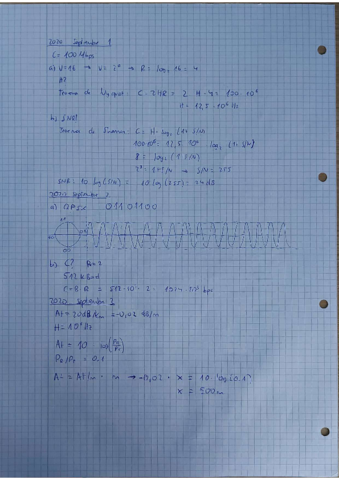 2020 September 1
C = 100 Mbps
a) V=16 → V = 2ⁿ → B = log₂ 16 = 4
H?
Teorema de Nyquist: C = 2HB = 2 · H · 4 = 100 · 10⁶
H = 12,5 · 10⁶ Hz
b) SNR?
Teorema de Shannon: C = H · log₂ (1 + S/N)
100·10⁶ = 12,5 · 10⁶ · log₂ (1 + S/N)
8 = log₂ (1 + S/N)
2⁸ = 1 + S/N → S/N = 255
SNR = 10 log (S/N) = 10 log (255) = 24 dB
2020 September 2
a) QPSK 01101100
b) C?
512 kBaud
C =
2020 September 3
At = 20 dB/Km = -0,02 dB/m
H = 10⁶ Hz
At = 10 log (P₂/P₁)
P₂/P₁ = 0.1
A = At/m · m → -0,02 · x = 10 log (0.1)
x = 500m